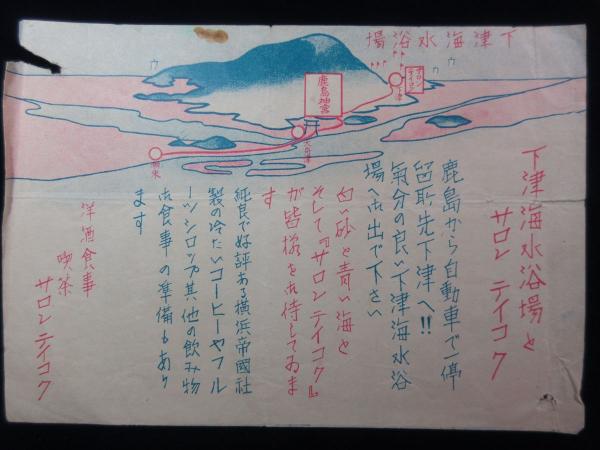 下津海水浴場
サロンテイコク
下津
鹿島神宮
大船津
潮来
下津海水浴場と
サロンテイコク
鹿島から自動車で一停
留所先下津へ!!
気分の良い下津海水浴
場へお出で下さい
白い砂と青い海と
そして『サロンテイコク』
が皆様をお待してゐま
す
純良で好評ある横浜帝國社
製の冷たいコーヒーやフル
ーツシロップ其他の飲み物
お食事の準備もあり
ます
洋酒食事
喫茶
サロンテイコク